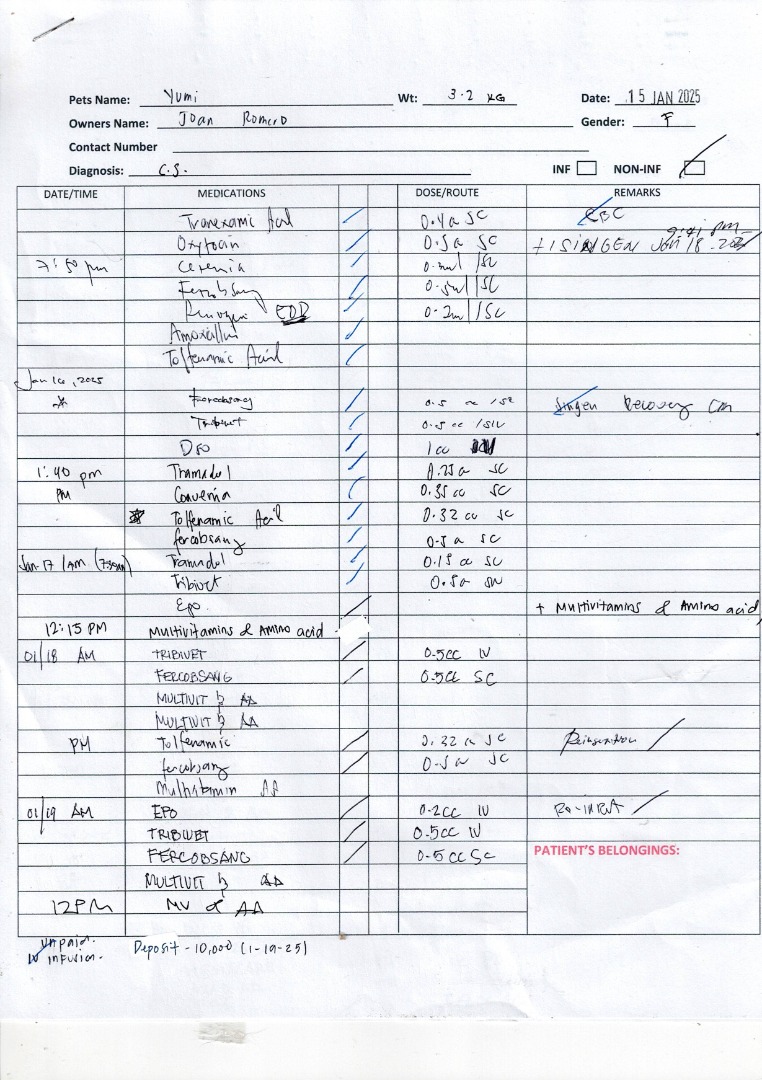 Pets Name: Yumi Wt: 3.2 KG Date: 15 JAN 2025
Owners Name: Joan Romero Gender: F
Contact Number
Diagnosis: C.S. INF NON-INF
DATE/TIME MEDICATIONS DOSE/ROUTE REMARKS
Tranexamic Acid 0.4 SC CBC
9:41 pm
Oxytocin 0.5 SC JAN 18
7:50 pm Cerenia /SC
Fercobsang 0.5ml /SC
EDD 0.2m /SC
Amoxicillin
Tolfenamic Acid
Jan 16, 2025
Fercobsang 0.5 cc /SC Recovery
Tribivet 0.5 cc
1cc
1:40 pm Tramadol 0.25 SC
PM Convenia 0.35 cc SC
Tolfenamic Acid 0.32 cc SC
fercobsang 0.5 SC
Jan 17 /AM Tramadol 0.15 cc SC
Tribivet 0.5
Epo + Multivitamins & Amino acid
12:15 PM Multivitamins & Amino acid
01/18 AM TRIBIVET 0.5CC IV
FERCOBSANG 0.5CC SC
MULTIVIT AA
MULTIVIT AA
PM Tolfenamic 0.32 SC Reinsertion
fercobsang 0.5 SC
Multivitamin AA
01/19 AM EPO 0.2CC IV
TRIBIVET 0.5CC IV
FERCOBSANG 0.5CC SC PATIENT'S BELONGINGS:
MULTIVIT AA
12PM MV & AA
Unpaid.
IV infusion. Deposit - 10,000 (1-19-25)